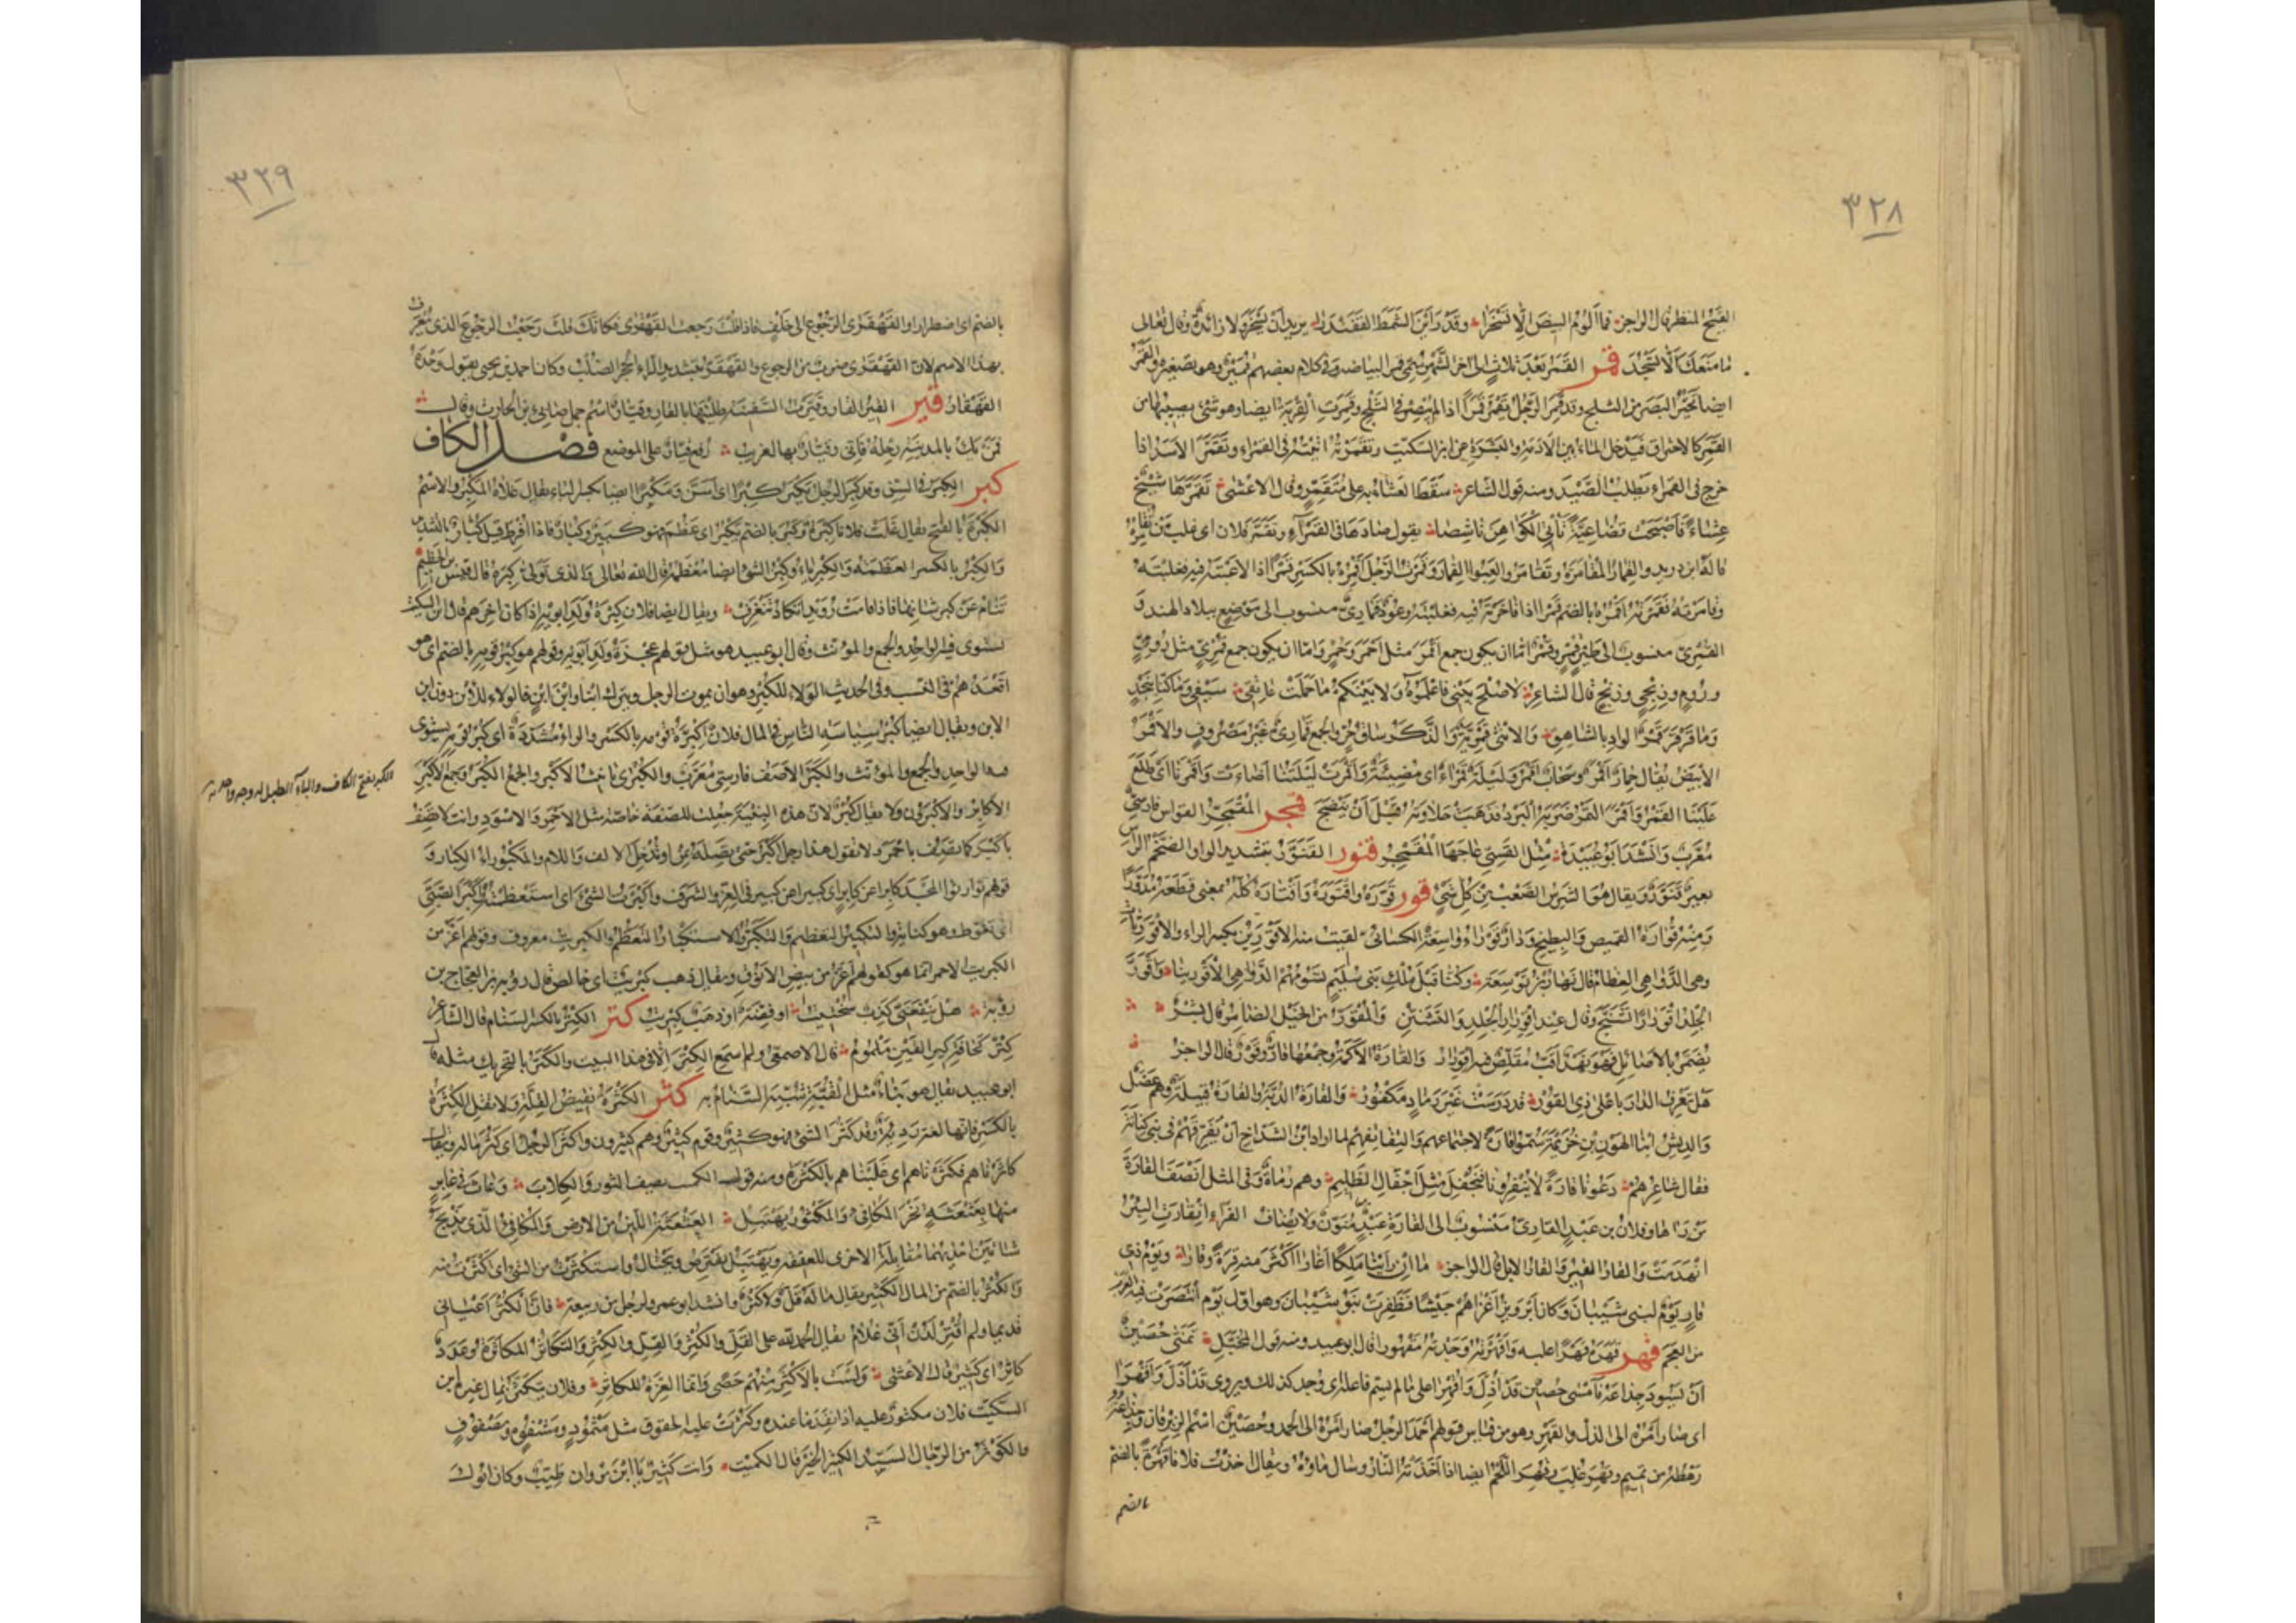 ٣٢٨
القبيح المنظر قال الراجز فما ألوم البيض ألا تسخرا وقد رأين الشمط القفندرا يريد أن تسخر ولا زائدة وقال تعالى
ما منعك ألا تسجد قمر القمر بعد ثلاث إلى آخر الشهر يسمى قمرا لبياضه وفي كلام بعضهم قمير وهو تصغيره والقمر
ايضا تحير البصر من الثلج وقد قمر الرجل يقمر قمرا اذا لم يبصر في الثلج وقمرت القربة ايضا وهو شيء يصيبها من
القمر كالاحتراق فيدخل الماء بين الأدمة والبشرة عن ابن السكيت وتقمرته اتيته في القمراء وتقمر الأسد اذا
خرج في القمراء يطلب الصيد ومنه قول الشاعر سقط العشاء به على متقمر وقال الاعشى تقمرها شيخ
عشاء فأصبحت قضاعية تأتي الكواهن ناشصا يقول صادها في القمراء وتقمر فلان اى غلب من يقامره
قاله ابن دريد والقمار المقامرة وتقامروا لعبوا القمار وقمرت الرجل أقمره بالكسر قمرا اذا لاعبته فيه فغلبته
وقامرته فقمرته أقمره بالضم قمرا اذا فاخرته فيه فغلبته وعود قماري منسوب الى موضع ببلاد الهند و
القمري منسوب الى طير قمر وقمر اما ان يكون جمع أقمر مثل أحمر وحمر واما ان يكون جمع قمري مثل رومي
وروم وزنجي وزنج قال الشاعر لا صلح بيني فاعلموه ولا بينكم ما حملت عاتقي سيفي وما كنا بنجد
وما قرقر قمر الواد بالشاهق والانثى قمرية والذكر ساق حر والجمع قماري غير مصروف والاقمر
الأبيض يقال حمار أقمر وسحاب أقمر وليلة قمراء اى مضيئة وأقمرت ليلتنا أضاءت وأقمرنا أى طلع
علينا القمر وأقمر التمر ضربه البرد فذهبت حلاوته قبل أن ينضج قمجر المقمجر القواس فارسي
معرب وانشد ابو عبيدة مثل القسي عاجها المقمجر قنور القنور بتشديد الواو الضخم الراس
بعير قنور ويقال هو الشرس الصعب من كل شيء قور قوره واقتوره واقتاره كله بمعنى قطعه مدورا
ومنه قوارة القميص والبطيخ ودار قوراء واسعة الكسائي لقيت منه الاقورين بكسر الراء والأقوريات
وهى الدواهى العظام قال نهار بن توسعة وكنا قبل ملك بنى سليم نسومهم الدواهي الأقورينا واقور
الجلد اقورارا تشنج وقال عند اقورار الجلد والتشنن والمقور من الخيل الضامر قال بشر
يضمر بالأصائل فهو نهد أقب مقلص فيه اقورار والقارة الأكمة وجمعها قار وقور قال الراجز
هل تعرف الدار بأعلى ذي القور قد درست غير رماد مكفور والقارة الدبة والقارة قبيلة وهم عضل
والديش ابنا الهون بن خزيمة سموا قارة لاجتماعهم والتفافهم لما اراد ابن الشداخ أن يفرقهم في بني كنانة
فقال شاعرهم دعونا قارة لا تنفرونا فنجفل مثل اجفال الظليم وهم رماة وفى المثل انصف القارة
من راماها وفلان بن عبد القاري منسوب الى القارة عبد منون ولا يضاف الفراء انقارت البئر
انهدمت والقار القير والقار الابل قال الراجز ما ان رأينا ملكا أغارا أكثر منه قرة وقارا ويوم ذي
قار يوم لبني شيبان وكان أبرويز أغزاهم جيشا فظفرت بنو شيبان وهو اول يوم انتصرت فيه العرب
من العجم قهر قهره قهرا غلبه وأقهرته وجدته مقهورا قال ابو عبيد ومنه قول المخبل تمنى حصين
أن يسود جذاعه فأمسى حصين قد أذل وأقهرا على ما لم يسم فاعله اى وجد كذلك ويروى قد أذل وأقهرا
اى صار أمره الى الذل والقهر وهو من قياس قولهم أحمد الرجل صار أمره الى الحمد وحصين اسم الزبرقان وجذاعه
رهطه من تميم وقهر غلب وقهر اللحم ايضا اذا أخذته النار وسال ماؤه ويقال أخذت فلانا قهرة بالضم
بالضم
٣٢٩
بالضم اى اضطرارا والقهقرى الرجوع الى خلف فاذا قلت رجعت القهقرى فكانك قلت رجعت الرجوع الذى يعرف
بهذا الاسم لان القهقرى ضرب من الرجوع والقهقر بتشديد الراء الحجر الصلب وكان احمد بن يحيى يقول وحده
القهقار قير القير القار وقيرت السفينة طليتها بالقار وقيار اسم جمل ضابئ بن الحارث وقال
فمن يك بالمدينة رحله فاني وقيار بها لغريب رفع قيار على الموضع فصل الكاف
كبر الكبر في السن وقد كبر الرجل يكبر كبرا اى أسن ومكبرا ايضا بكسر الباء يقال علاه المكبر والاسم
الكبرة بالفتح يقال علت فلانا كبرة وكبر بالضم يكبر اى عظم فهو كبير وكبار فاذا أفرط قيل كبار بالتشديد
والكبر بالكسر العظمة والكبرياء وكبر الشئ ايضا معظمه قال الله تعالى والذى تولى كبره قال قيس بن الخطيم
تنام عن كبر شانها فاذا قامت رويدا تكاد تنغرف ويقال ايضا فلان كبرة ولد ابويه اذا كان آخرهم قال ابن السكيت
يستوى فيه الواحد والجمع والمؤنث وقال ابو عبيد هو مثل قولهم عجزة ولد ابويه وقولهم هو كبر قومه بالضم اى هو
اقعدهم في النسب وفى الحديث الولاء للكبر وهو ان يموت الرجل ويترك ابنا وابن ابن فالولاء للابن دون ابن
الابن ويقال ايضا كبر سياسة الناس في المال فلان اكبرة قومه بالكسر والراء مشددة اى كبر قومه يستوى
فيه الواحد والجمع والمؤنث والكبر الأصف فارسي معرب والكبرى تأنيث الأكبر والجمع الكبر وجمع الأكبر
الكبر بفتح الكاف والباء الطبل له وجه واحد
الأكابر والأكبرون ولا يقال كبر لان هذه البنية جعلت للصفة خاصة مثل الأحمر والاسود وانت لا تصف
بأكبر كما تصف باحمر لا تقول هذا رجل اكبر حتى تصله بمن او تدخل الالف واللام والمكبوراء الكبار و
قولهم توارثوا المجد كابرا عن كابر اى كبيرا عن كبير في العز والشرف واكبرت الشئ اى استعظمته واكبر الصبي
اى تغوط وهو كناية والتكبير التعظيم والتكبر والاستكبار التعظم والكبريت معروف وقولهم أعز من
الكبريت الاحمر انما هو كقولهم أعز من بيض الأنوق ويقال ذهب كبريت اى خالص قال رؤبة بن العجاج بن
رؤبة هل ينفعني كذب سختيت او فضة او ذهب كبريت كتر الكتر بالكسر السنام قال الشاعر
كتر كحافة كير القين ملموم قال الاصمعى ولم اسمع الكتر الا في هذا البيت والكتر بالتحريك مثله قال
ابو عبيد يقال هو بناء مثل القبة شبه السنام به كثر الكثرة نقيض القلة ولا تقل الكثرة
بالكسر فانها لغة ردية وقد كثر الشئ فهو كثير وقوم كثير وهم كثيرون واكثر الرجل اى كثر ماله ويقال
كاثرناهم فكثرناهم اى غلبناهم بالكثرة ومنه قول الكميت يصف الثور والكلاب وعاث في غابر
منها بعثعثة نحر المكافئ والمكثور يهتبل العثعثة اللين من الارض والمكافئ الذى يذبح
شاتين احديهما مقابلة الاخرى للعقيقة ويهتبل يفترص ويحتال واستكثرت من الشئ اى اكثرت منه
والكثر بالضم من المال الكثير يقال ما له قل ولا كثر وانشد ابو عمرو لرجل من ربيعة فان الكثر أعياني
قديما ولم اقتر لدن أني غلام يقال الحمد لله على القل والكثر والقل والكثر والتكاثر المكاثرة وعدد
كاثر اى كثير قال الاعشى ولست بالأكثر منهم حصى وانما العزة للكاثر وفلان يتكثر بمال غيره ابن
السكيت فلان مكثور عليه اذا نفد ما عنده وكثرت عليه الحقوق مثل مثمود ومشفوه ومضفوف
والكوثر من الرجال السيد الكثير الخير قال الكميت وانت كثير يا ابن مروان طيب وكان ابوك